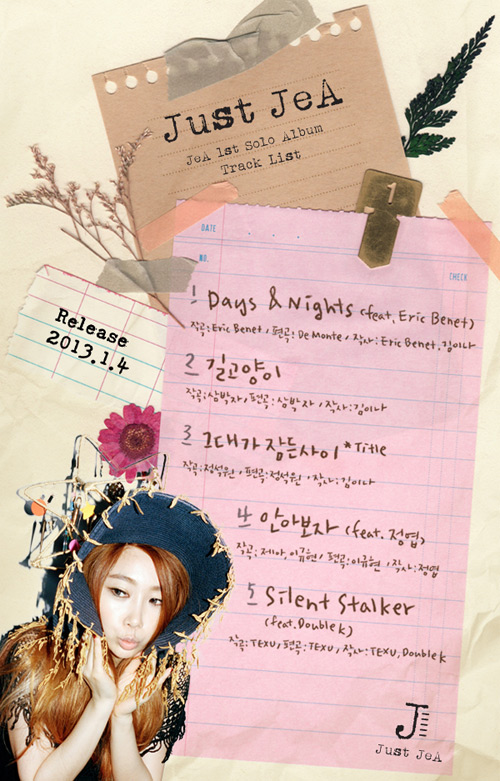 Just JeA
JeA 1st Solo Album
Track List
1
DATE
NR.
CHECK
Release
2013.1.4
1 Days & Nights (feat. Eric Benet)
작곡: Eric Benet / 편곡: De Monte / 작사: Eric Benet, 김이나
2 길고양이
작곡: 삼박자 / 편곡: 삼박자 / 작사: 김이나
3 그대가 잠든사이 *Title
작곡: 정석원 / 편곡: 정석원 / 작사: 김이나
4 안아보자 (feat. 정엽)
작곡: 제아, 이규현 / 편곡: 이규현 / 작사: 정엽
5 Silent Stalker
(feat. Double K)
작곡: TEXU, 편곡: TEXU, 작사: TEXU, Double K
J
Just JeA